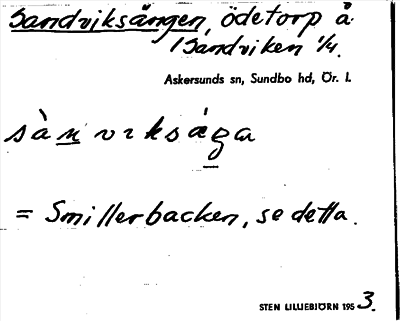 Sandviksängen, ödetorp å
1 Sandviken 1/4.
Askersunds sn, Sundbo hd, Ör. l.
sà n v ı k s á g a
= Smillerbacken, se detta.
STEN LILLIEBJÖRN 1953.